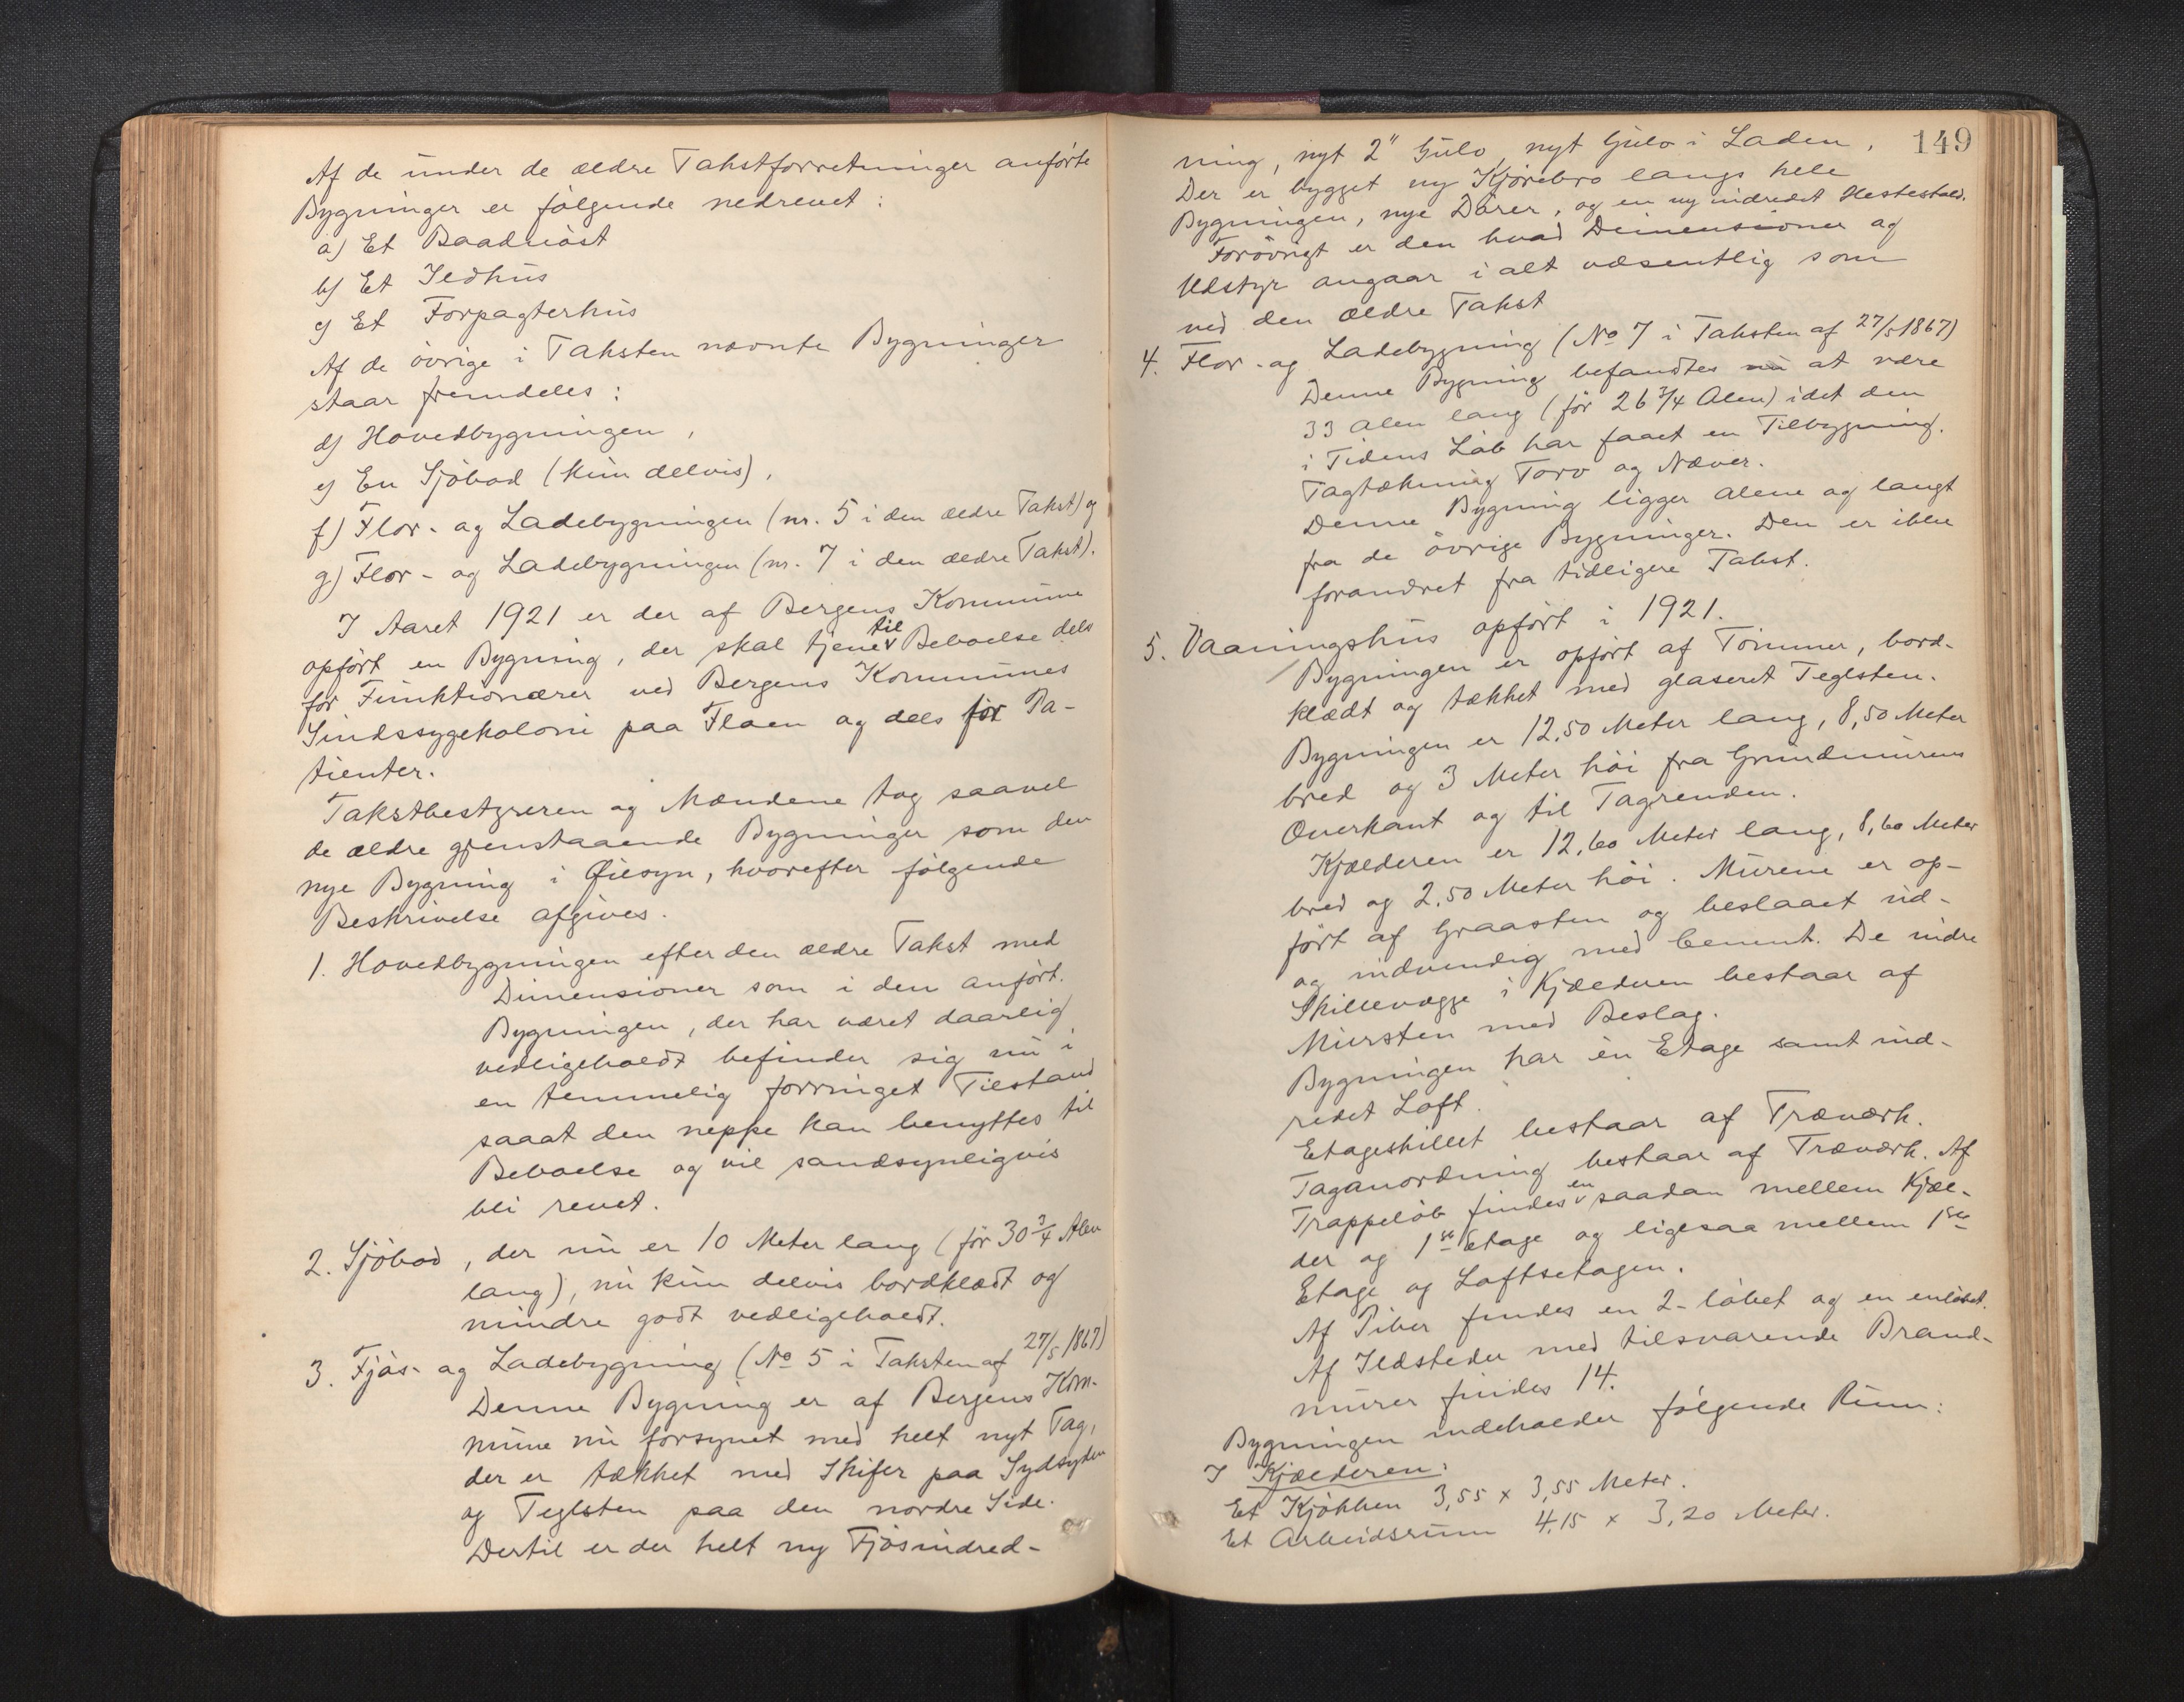 Af de under de ældre Takstforretninger anførte
Bygninger er følgende nedrevet:
a) Et Baadnøst
b) Et Ildhus
c) Et Forpagterhus
Af de øvrige i Taksten nævnte Bygninger
staar fremdeles:
d) Hovedbygningen,
e) En Sjøbod (kun delvis),
f) Flor- og Ladebygningen (nr. 5 i den ældre Takst) og
g) Flor- og Ladebygningen (nr. 7 i den ældre Takst).
I Aaret 1921 er der af Bergens Kommune
opført en Bygning, der skal tjene til Beboelse dels
for Funktionærer ved Bergens Kommunes
Sindssygekoloni paa Floen og dels for Pa-
tienter.
Takstbestyreren og Mændene tog saavel
de ældre gjenstaaende Bygninger som den
nye Bygning i Øiesyn, hvorefter følgende
Beskrivelse afgives.
1. Hovedbygningen efter den ældre Takst med
Dimensioner som i den anført.
Bygningen, der har været daarlig
vedligeholdt befinder sig nu i
en temmelig forringet Tilstand
saaat den neppe kan benyttes til
Beboelse og vil sandsynligvis
bli revet.
2. Sjøbod, der nu er 10 Meter lang (før 30 3/4 Alen
lang), nu kun delvis bordklædt og
mindre godt vedligeholdt.
3. Fjøs- og Ladebygning (No 5 i Taksten af 27/5 1867)
Denne Bygning er af Bergens Kom-
mune nu forsynet med helt nyt Tag,
der er tækket med Skifer paa Sydsyden
og Teglsten paa den nordre Side.
Dertil er der helt ny Fjøsindred-
149
ning, nyt 2" Gulv nyt Gulv i Laden,
Der er bygget ny Kjørebro langs hele
Bygningen, nye Dører, og en ny indredet Hestestald.
Forøvrigt er den hvad Dimensioner og
Udstyr angaar i alt væsentlig som
ved den ældre Takst
4. Flor- og Ladebygning (No 7 i Taksten af 27/5 1867)
Denne Bygning befandtes nu at være
33 Alen lang (før 26 3/4 Alen) idet den
i Tidens Løb har faaet en Tilbygning.
Tagtækning Torv og Næver.
Denne Bygning ligger alene og langt
fra de øvrige Bygninger. Den er ikke
forandret fra tidligere Takst.
5. Vaaningshus opført i 1921.
Bygningen er opført af Tømmer, bord-
klædt og tækket med glaseret Teglsten.
Bygningen er 12,50 Meter lang, 8,50 Meter
bred og 3 Meter høi fra Grundmurens
Overkant og til Tagrenden.
Kjælderen er 12,60 Meter lang, 8,60 Meter
bred og 2,50 Meter høi. Murene er op-
ført af Graasten og beslaaet ud-
og indvendig med Cement. De indre
Skillevægge i Kjælderen bestaar af
Mursten med Beslag.
Bygningen har én Etage samt ind-
redet Loft.
Etageskillet bestaar af Træværk.
Taganordning bestaar af Træværk. Af
Trappeløb findes en saadan mellem Kjæl-
der og 1ste Etage og ligesaa mellem 1ste
Etage og Loftsetagen.
Af Piber findes en 2-løbet og en enløbet.
Af Ildsteder med tilsvarende Brand-
murer findes 14.
Bygningen indeholder følgende Rum:
I Kjælderen:
Et Kjøkken 3,55 x 3,55 Meter.
Et Arbeidsrum 4,15 x 3,20 Meter.